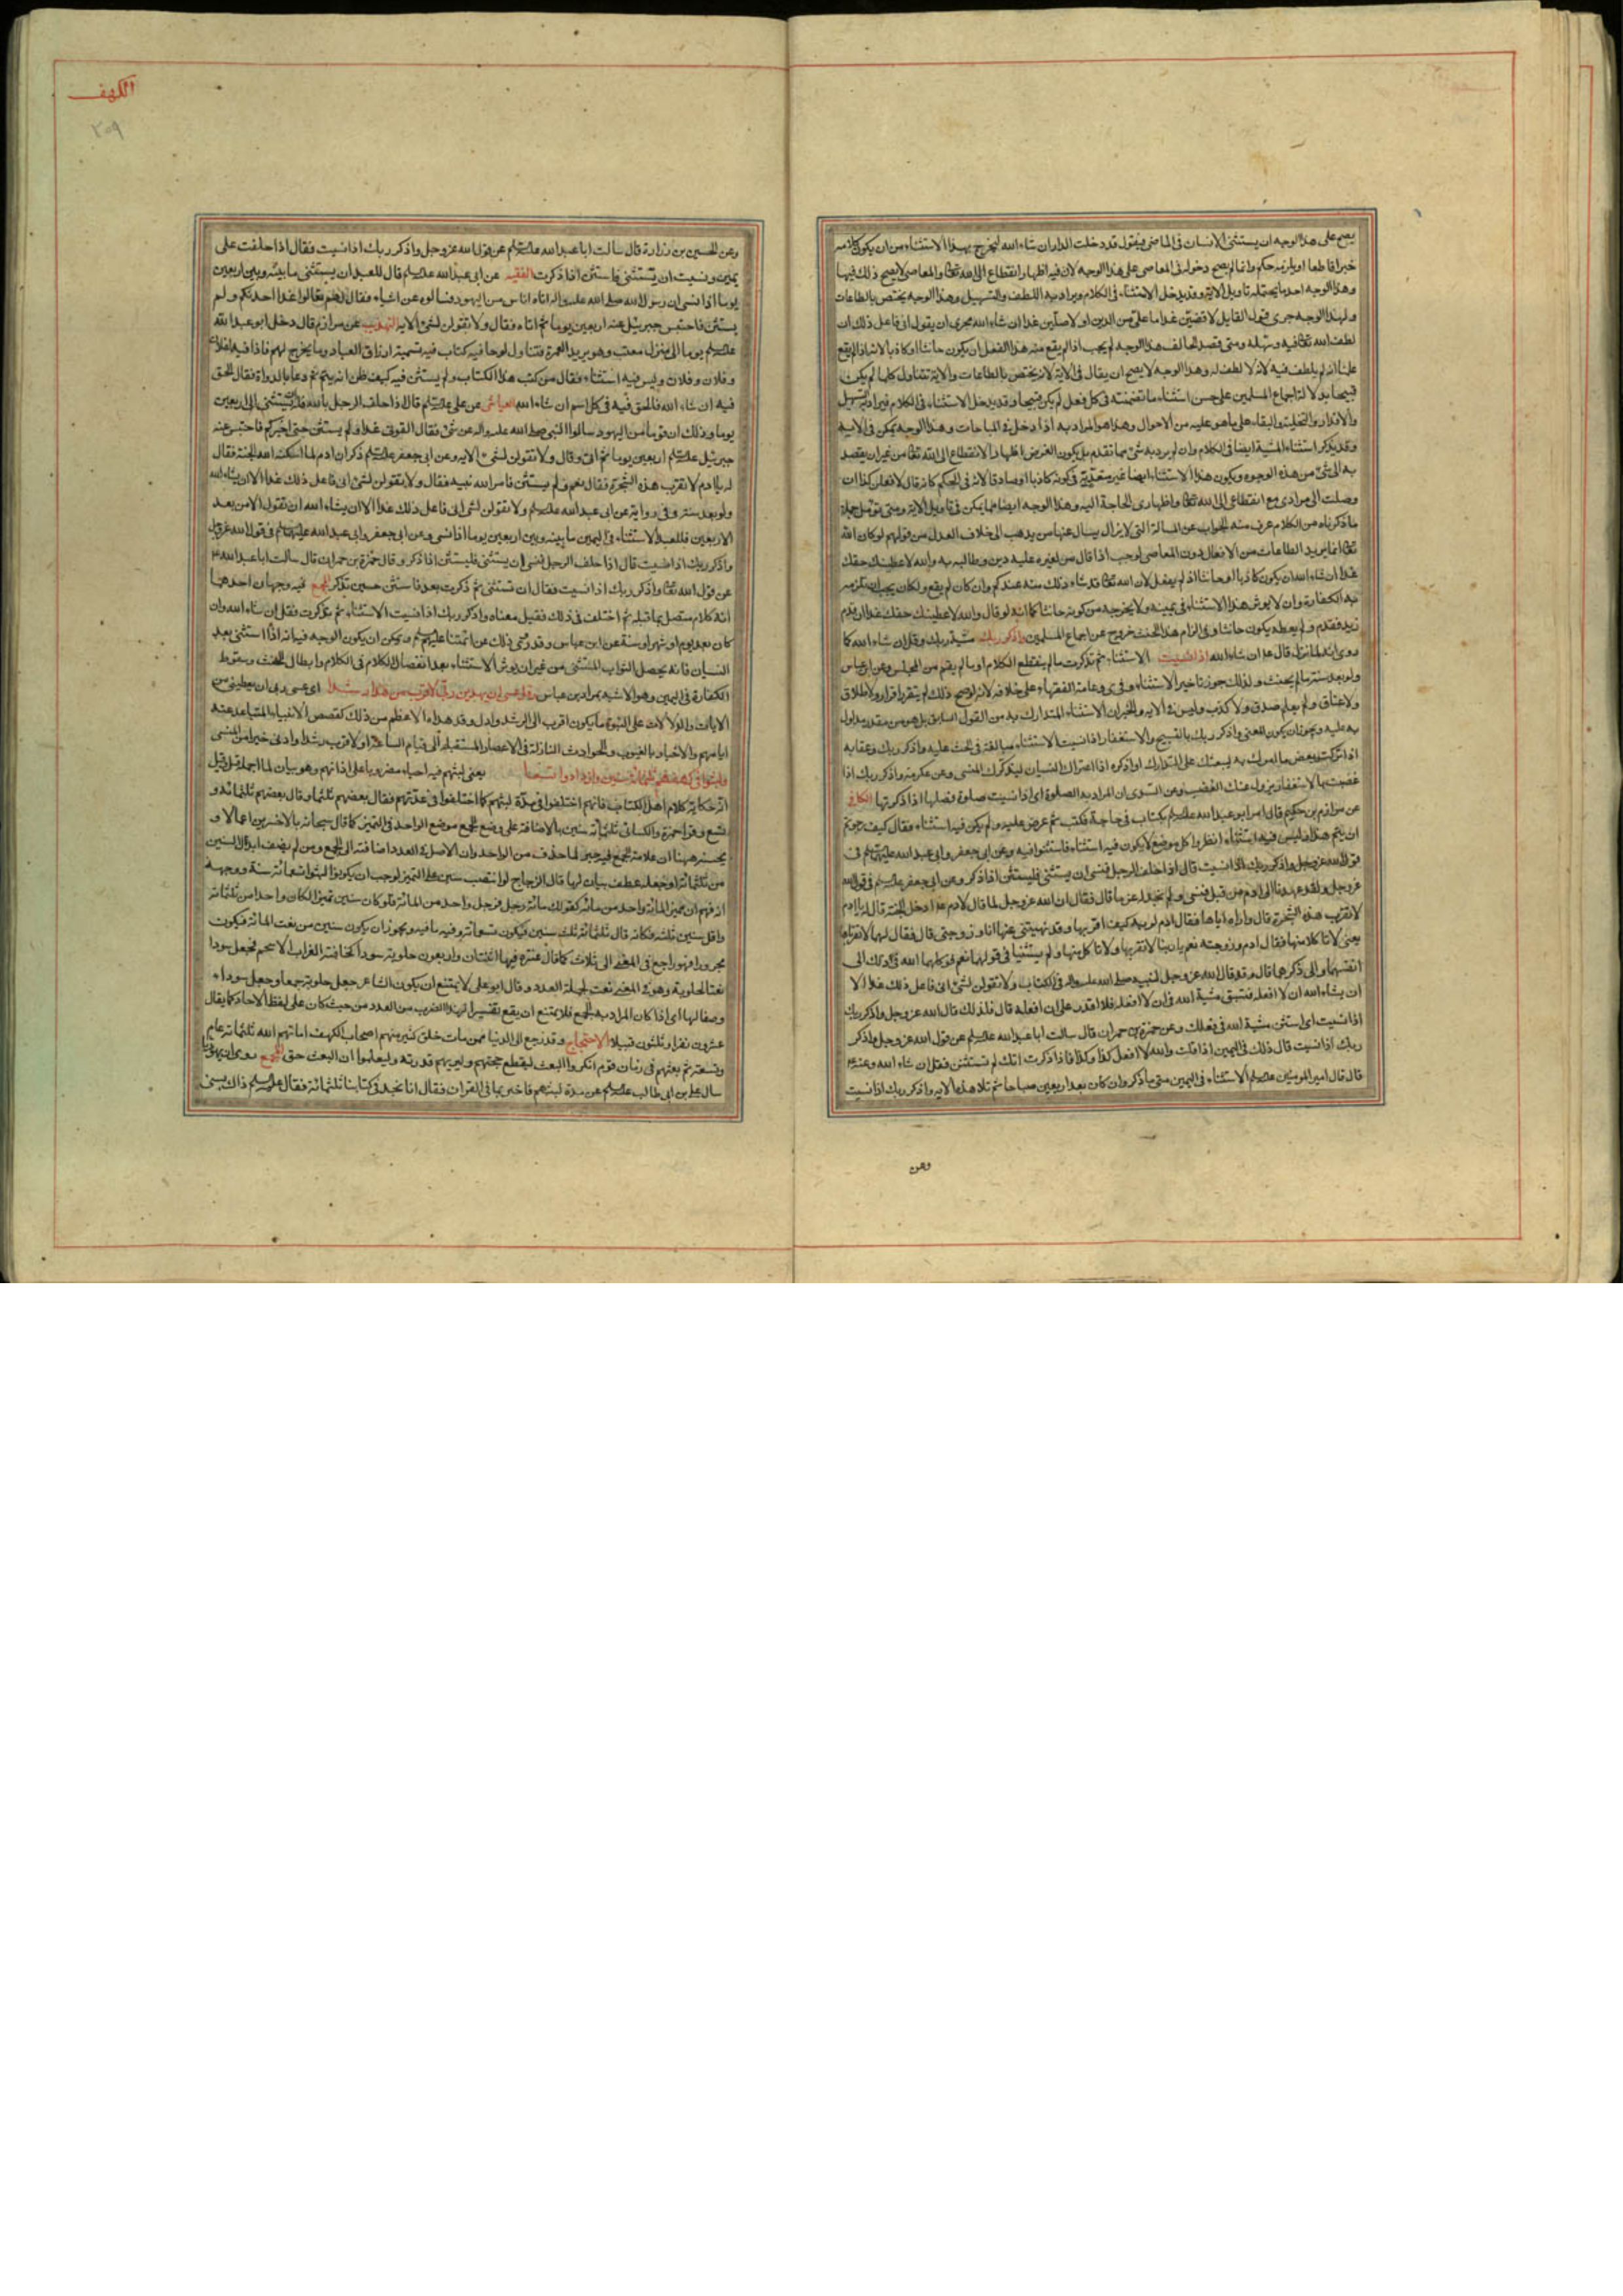 يصح على هذا الوجه ان يستثنى الانسان فى الماضى فيقول قد دخلت الدار ان شاء الله ليخرج بهذا الاستثناء من ان يكون كلامه
خبرا قاطعا او يلزمه حكم وانما لم يصح دخوله فى المعاصى على هذا الوجه لان فيه اظهار انقطاع الى الله تعالى والمعاصى لا يصح ذلك فيها
وهذا الوجه احد ما يحتمله تاويل الاية وقد يدخل الاستثناء فى الكلام ويراد به اللطف والتسهيل وهذا الوجه يختص بالطاعات
ولهذا الوجه جرى قول القايل لاقضين غدا ما على من الدين او لاصلين غدا ان شاء الله مجرى ان يقول انى فاعل ذلك ان
لطف الله تعالى فيه وسهله ومتى قصد الحالف هذا الوجه لم يجب اذا لم يقع منه هذا الفعل ان يكون حانثا او كاذبا لانه اذا لم يقع
علمنا انه لم يلطف فيه لانه لا لطف له وهذا الوجه لا يصح ان يقال فى الاية لانه يختص بالطاعات والاية تتناول كلما لم يكن
قبيحا بدلالة اجماع المسلمين على حسن استثناء ما تضمنته فى كل فعل لم يكن قبيحا وقد يدخل الاستثناء فى الكلام فيراد به التسهيل
والاقدار والتخلية والبقاء على ما هو عليه من الاحوال وهذا هو المراد به اذا دخل فى المباحات وهذا الوجه يمكن فى الاية
وقد يذكر استثناء المشية ايضا فى الكلام وان لم يرد به شئ مما تقدم بل يكون الغرض اظهار الانقطاع الى الله تعالى من غير ان يقصد
به الى شئ من هذه الوجوه ويكون هذا الاستثناء ايضا غير معتد به فى كونه كاذبا او صادقا لانه فى الحكم كانه قال لافعلن كذا ان
وصلت الى مرادى مع انقطاعى الى الله تعالى واظهارى الحاجة اليه وهذا الوجه ايضا مما يمكن فى تاويل الاية ومتى تؤمل جملة
ما ذكرناه من الكلام عرف منه الجواب عن المسالة التى لا يزال يسال عنها من يذهب الى خلاف العدل من قولهم لو كان الله
تعالى انما يريد الطاعات من الافعال دون المعاصى لوجب اذا قال من لغيره عليه دين وطالبه به والله لاعطينك حقك
غدا ان شاء الله ان يكون كاذبا او حانثا اذا لم يفعل لان الله تعالى قد شاء ذلك منه عندكم وان كان لم يقع ولكان يجب ان تلزمه
به الكفارة وان لا يؤثر هذا الاستثناء فى يمينه ولا يخرجه من كونه حانثا كما انه لو قال والله لاعطينك حقك غدا ان قدم
زيد فقدم ولم يعطه يكون حانثا وفى الزام هذا الحنث خروج عن اجماع المسلمين واذكر ربك مشية ربك وقل ان شاء الله كما
روى انه لما نزل قال ع ان شاء الله اذا نسيت الاستثناء ثم تذكرت ما لم ينقطع الكلام او ما لم يقم من المجلس وعن ابن عباس
ولو بعد سنة ما لم يحنث ولذلك جوز تاخير الاستثناء وعامة الفقهاء على خلافه لانه لو صح ذلك لم يتقرر اقرار ولا طلاق
ولا عتاق ولم يعلم صدق ولا كذب وليس فى الاية والخبر ان الاستثناء المتدارك به من القول السابق بل هو من مقدر مدلول
به عليه ويجوز ان يكون المعنى واذكر ربك بالتسبيح والاستغفار اذا نسيت الاستثناء مبالغة فى الحث عليه واذكر ربك وعقابه
اذا تركت بعض ما امرك به ليبعثك على التدارك او اذكره اذا اعتراك النسيان ليذكرك المنسى وعن عكرمة واذكر ربك اذا
غضبت بالاستغفار يزول عنك الغضب وعن السدى ان المراد به الصلوة اى اذا نسيت صلوة فصلها اذا ذكرتها الكافى
عن مرازم بن حكيم قال امر ابو عبد الله عليه السلام بكتاب فى حاجة فكتب ثم عرض عليه ولم يكن فيه استثناء فقال كيف رجوتم
ان يتم هذا وليس فيه استثناء انظروا كل موضع لا يكون فيه استثناء فاستثنوا فيه وعن ابى جعفر وابى عبد الله عليهما السلام فى
قول الله عز وجل واذكر ربك اذا نسيت قال اذا حلف الرجل فنسى ان يستثنى فليستثن اذا ذكر وعن ابى جعفر عليه السلام فى قول الله
عز وجل ولقد عهدنا الى ادم من قبل فنسى ولم نجد له عزما قال فقال ان الله عز وجل لما قال لادم ادخل الجنة قال له يا ادم
لا تقرب هذه الشجرة قال واراه اياها فقال ادم لربه كيف اقربها وقد نهيتنى عنها انا وزوجتى قال فقال لهما لا تقرباها
يعنى لا تاكلا منها فقال ادم وزوجته نعم يا ربنا لا نقربها ولا ناكل منها ولم يستثنيا فى قولهما نعم فوكلهما الله فى ذلك الى
انفسهما والى ذكرهما قال وقد قال الله عز وجل لنبيه صلى الله عليه واله فى الكتاب ولا تقولن لشئ انى فاعل ذلك غدا الا
ان يشاء الله ان لا افعله فتسبق مشية الله فى ان لا افعله فلا اقدر على ان افعله قال فلذلك قال الله عز وجل واذكر ربك
اذا نسيت اى استثن مشية الله فى فعلك وعن حمزة بن حمران قال سالت ابا عبد الله عليه السلام عن قول الله عز وجل واذكر
ربك اذا نسيت قال ذلك فى اليمين اذا قلت والله لا افعل كذا وكذا فاذا ذكرت انك لم تستثن فقل ان شاء الله وعنه ع
قال قال امير المومنين عليه السلام الاستثناء فى اليمين متى ما ذكر وان كان بعد اربعين صباحا ثم تلا هذه الاية واذكر ربك اذا نسيت
وعن
الكهف
٢٠٩
وعن الحسين بن زرارة قال سالت ابا عبد الله عليه السلام عن قول الله عز وجل واذكر ربك اذا نسيت فقال اذا حلفت على
يمين ونسيت ان تستثنى فاستثن اذا ذكرت الفقيه عن ابى عبد الله عليه السلام قال للعبد ان يستثنى ما بينه وبين اربعين
يوما اذا نسى ان رسول الله صلى الله عليه واله اتاه اناس من اليهود فسالوه عن اشياء فقال لهم تعالوا غدا احدثكم ولم
يستثن فاحتبس جبرئيل عنه اربعين يوما ثم اتاه فقال ولا تقولن لشئ الاية التهذيب عن مرازم قال دخل ابو عبد الله
عليه السلام يوما الى منزل معتب وهو يريد العمرة فتناول لوحا فيه كتاب فيه تسمية ارزاق العباد وما يخرج لهم فاذا فيه لفلان
وفلان وفلان وليس فيه استثناء فقال من كتب هذا الكتاب ولم يستثن فيه كيف ظن انه يتم ثم دعا بالدواة فقال الحق
فيه ان شاء الله فالحق فيه فى كل اسم ان شاء الله العياشى عن على عليه السلام قال اذا حلف الرجل بالله فله ان يستثنى الى اربعين
يوما وذلك ان قوما من اليهود سالوا النبى صلى الله عليه واله عن شئ فقال القونى غدا ولم يستثن حتى اخبركم فاحتبس عنه
جبرئيل عليه السلام اربعين يوما ثم اتى وقال ولا تقولن لشئ الاية وعن ابى جعفر عليه السلام ذكر ان ادم لما اسكنه الله الجنة فقال
له يا ادم لا تقرب هذه الشجرة فقال نعم ولم يستثن فامر الله نبيه فقال ولا تقولن لشئ انى فاعل ذلك غدا الا ان يشاء الله
ولو بعد سنة وفى رواية عن ابى عبد الله عليه السلام ولا تقولن لشئ انى فاعل ذلك غدا الا ان يشاء الله ان تقول الا من بعد
الاربعين فللعبد الاستثناء فى اليمين ما بينه وبين اربعين يوما اذا نسى وعن ابى جعفر وابى عبد الله عليهما السلام فى قول الله عز وجل
واذكر ربك اذا نسيت قال اذا حلف الرجل فنسى ان يستثنى فليستثن اذا ذكر وقال حمزة بن حمران قال سالت ابا عبد الله ع
عن قول الله تعالى واذكر ربك اذا نسيت فقال ان تستثنى ثم ذكرت بعد فاستثن حين تذكر المجمع فيه وجهان احدهما
انه كلام متصل بما قبله ثم اختلف فى ذلك فقيل معناه واذكر ربك اذا نسيت الاستثناء ثم تذكرت فقل ان شاء الله وان
كان بعد يوم او شهر او سنة عن ابن عباس وقد روى ذلك عن ائمتنا عليهم السلام ويمكن ان يكون الوجه فيه انه اذا استثنى بعد
النسيان فانه يحصل له ثواب المستثنى من غير ان يؤثر الاستثناء بعد انفصال الكلام فى الكلام وابطال الحنث وسقوط
الكفارة فى اليمين وهو الاشبه بمراد ابن عباس وقل عسى ان يهدين ربى لاقرب من هذا رشدا اى عسى ربى ان يعطينى من
الايات والدلالات على النبوة ما يكون اقرب الى الرشد وادل وقد هداه لاعظم من ذلك كقصص الانبياء المتباعد عنه
ايامهم والاخبار بالغيوب والحوادث النازلة فى الاعصار المستقبلة الى قيام الساعة او لاقرب رشدا وادنى خيرا من المنسى
ولبثوا فى كهفهم ثلثمائة سنين وازدادوا تسعا يعنى لبثهم فيه احياء مضروبا على اذانهم وهو بيان لما اجمله قبل وقيل
انه حكاية كلام اهل الكتاب فانهم اختلفوا فى مدة لبثهم كما اختلفوا فى عدتهم فقال بعضهم ثلثمائة وقال بعضهم ثلثمائة و
تسع وقرا حمزة والكسائى ثلثمائة سنين بالاضافة على وضع الجمع موضع الواحد فى التميز كما قال سبحانه بالاخسرين اعمالا و
يحسنه ههنا ان علامة الجمع فيه جبر لما حذف من الواحد وان الاصل فى العدد اضافته الى الجمع ومن لم يضف ابدل السنين
من ثلثمائة او جعله عطف بيان لها قال الزجاج لو انتصب سنين على التميز لوجب ان يكونوا لبثوا تسعمائة سنة ووجهه
انه فهم ان مميز المائة واحد من مائة كقولك مائة رجل فرجل واحد من المائة فلو كان سنين تميزا لكان واحدا من ثلثمائة
واقل سنين ثلثة فكانه قال ثلثمائة ثلث سنين فيكون تسعمائة وفيه ما فيه ويجوز ان يكون سنين من نعت المائة فيكون
مجرورا وهو راجع فى المعنى الى ثلاث كما قال عنترة فيها اثنتان واربعون حلوبة سودا كخافية الغراب الاسحم فجعل سودا
نعتا لحلوبة وهو فى المعنى نعت لجملة العدد وقال ابو على لا يمتنع ان يكون الشاعر جعل حلوبة جمعا وجعل سوداء
وصفا لها اى اذا كان المراد به الجمع فلا يمتنع ان يقع تفسيرا لهذا الضرب من العدد من حيث كان على لفظ الاحاد كما يقال
عشرون نفرا وثلثون قبيلا الاحتجاج وقد رجع الى الدنيا ممن مات خلق كثير منهم اصحاب الكهف اماتهم الله ثلثمائة عام
وتسعة ثم بعثهم فى زمان قوم انكروا البعث ليقطع حجتهم وليريهم قدرته وليعلموا ان البعث حق المجمع روى ان يهوديا
سال على بن ابى طالب عليه السلام عن مدة لبثهم فاخبر بما فى القران فقال انا نجد فى كتابنا ثلثمائة فقال عليه السلام ذاك بسنى